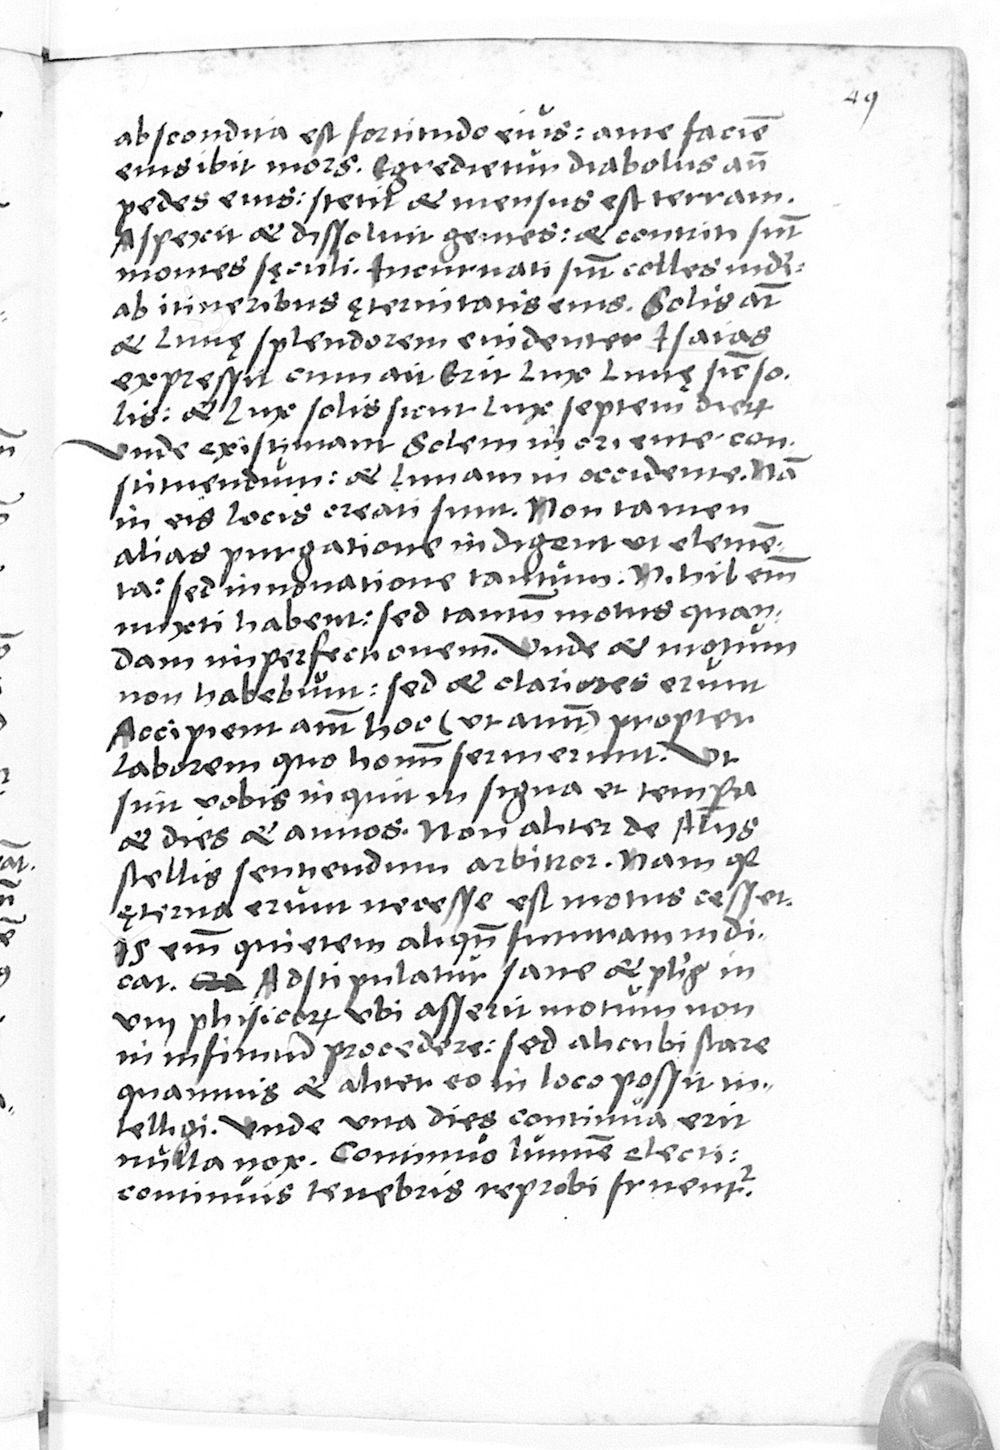 49
abscondita est fortitudo eius: ante faciē
eius ibit mors. Egredietur diabolus añ
pedes eius: stetit & mensus est terram.
Aspexit & dissoluit gentes: & contriti sūt
montes sęculi. Incuruati sūt colles mūdi:
ab itineribus ęternitatis eius. Solis āt
& Lunę splendorem euidenter Isaias
expressit cum ait Erit Lux Lunę sic̄ so.
lis: & Lux solis sicut Lux septem dieꝝ
Vnde existimant Solem in oriente con.
stituendum: & Lunam in occidente. Nā
in eis locis creati sunt. Non tamen
alias purgatione indigent ut elemē.
ta: sed innouatione tantum. Nihil em̄
mixti habent: sed tantū motus quan.
dam imperfectionem. Vnde & motum
non habebunt: sed & clariores erunt
Accipient aūt hoc (ut aiunt) propter
laborem quo homī seruierunt. Vt
sint vobis inquit in signa et tempora
& dies & annos. Non aliter de Alijs
stellis sentiendum arbitror. Nam qꝫ
ęterna erunt necesse est motus cesset.
Is em̄ quietem aliqn̄ futuram indi.
cat. Adstipulatur sane & ph̄s in
viij phisicoꝝ vbi asserit motum non
in infinitū procedere: sed alicubi stare
quamuis & aliter eo in loco possit in.
telligi. Vnde vna dies continua erit
nulla nox. Continuo lumīe electi:
continuis tenebris reprobi fruentʳ.